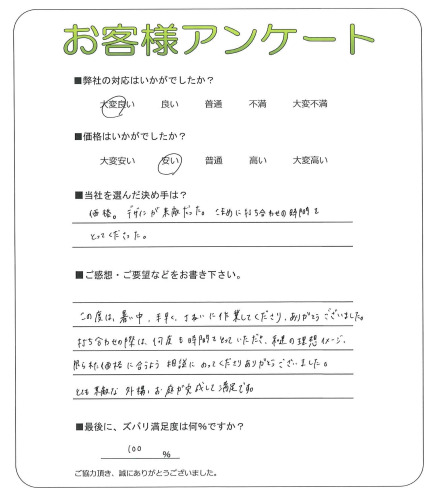 お客様アンケート
■弊社の対応はいかがでしたか？
大変良い 良い 普通 不満 大変不満
■価格はいかがでしたか？
大変安い 安い 普通 高い 大変高い
■当社を選んだ決め手は？
価格。デザインが素敵だった。こまめに打ち合わせの時間を
とってくださった。
■ご感想・ご要望などをお書き下さい。
この度は、暑い中、手早く、ていねいに作業してくださり、ありがとうございました。
打ち合わせの際は、何度も時間をとっていただき、私達の理想、イメージ、
限られた価格に合うよう相談にのってくださりありがとうございました。
とても素敵な外構、お庭が完成して満足です。
■最後に、ズバリ満足度は何%ですか？
100 %
ご協力頂き、誠にありがとうございました。